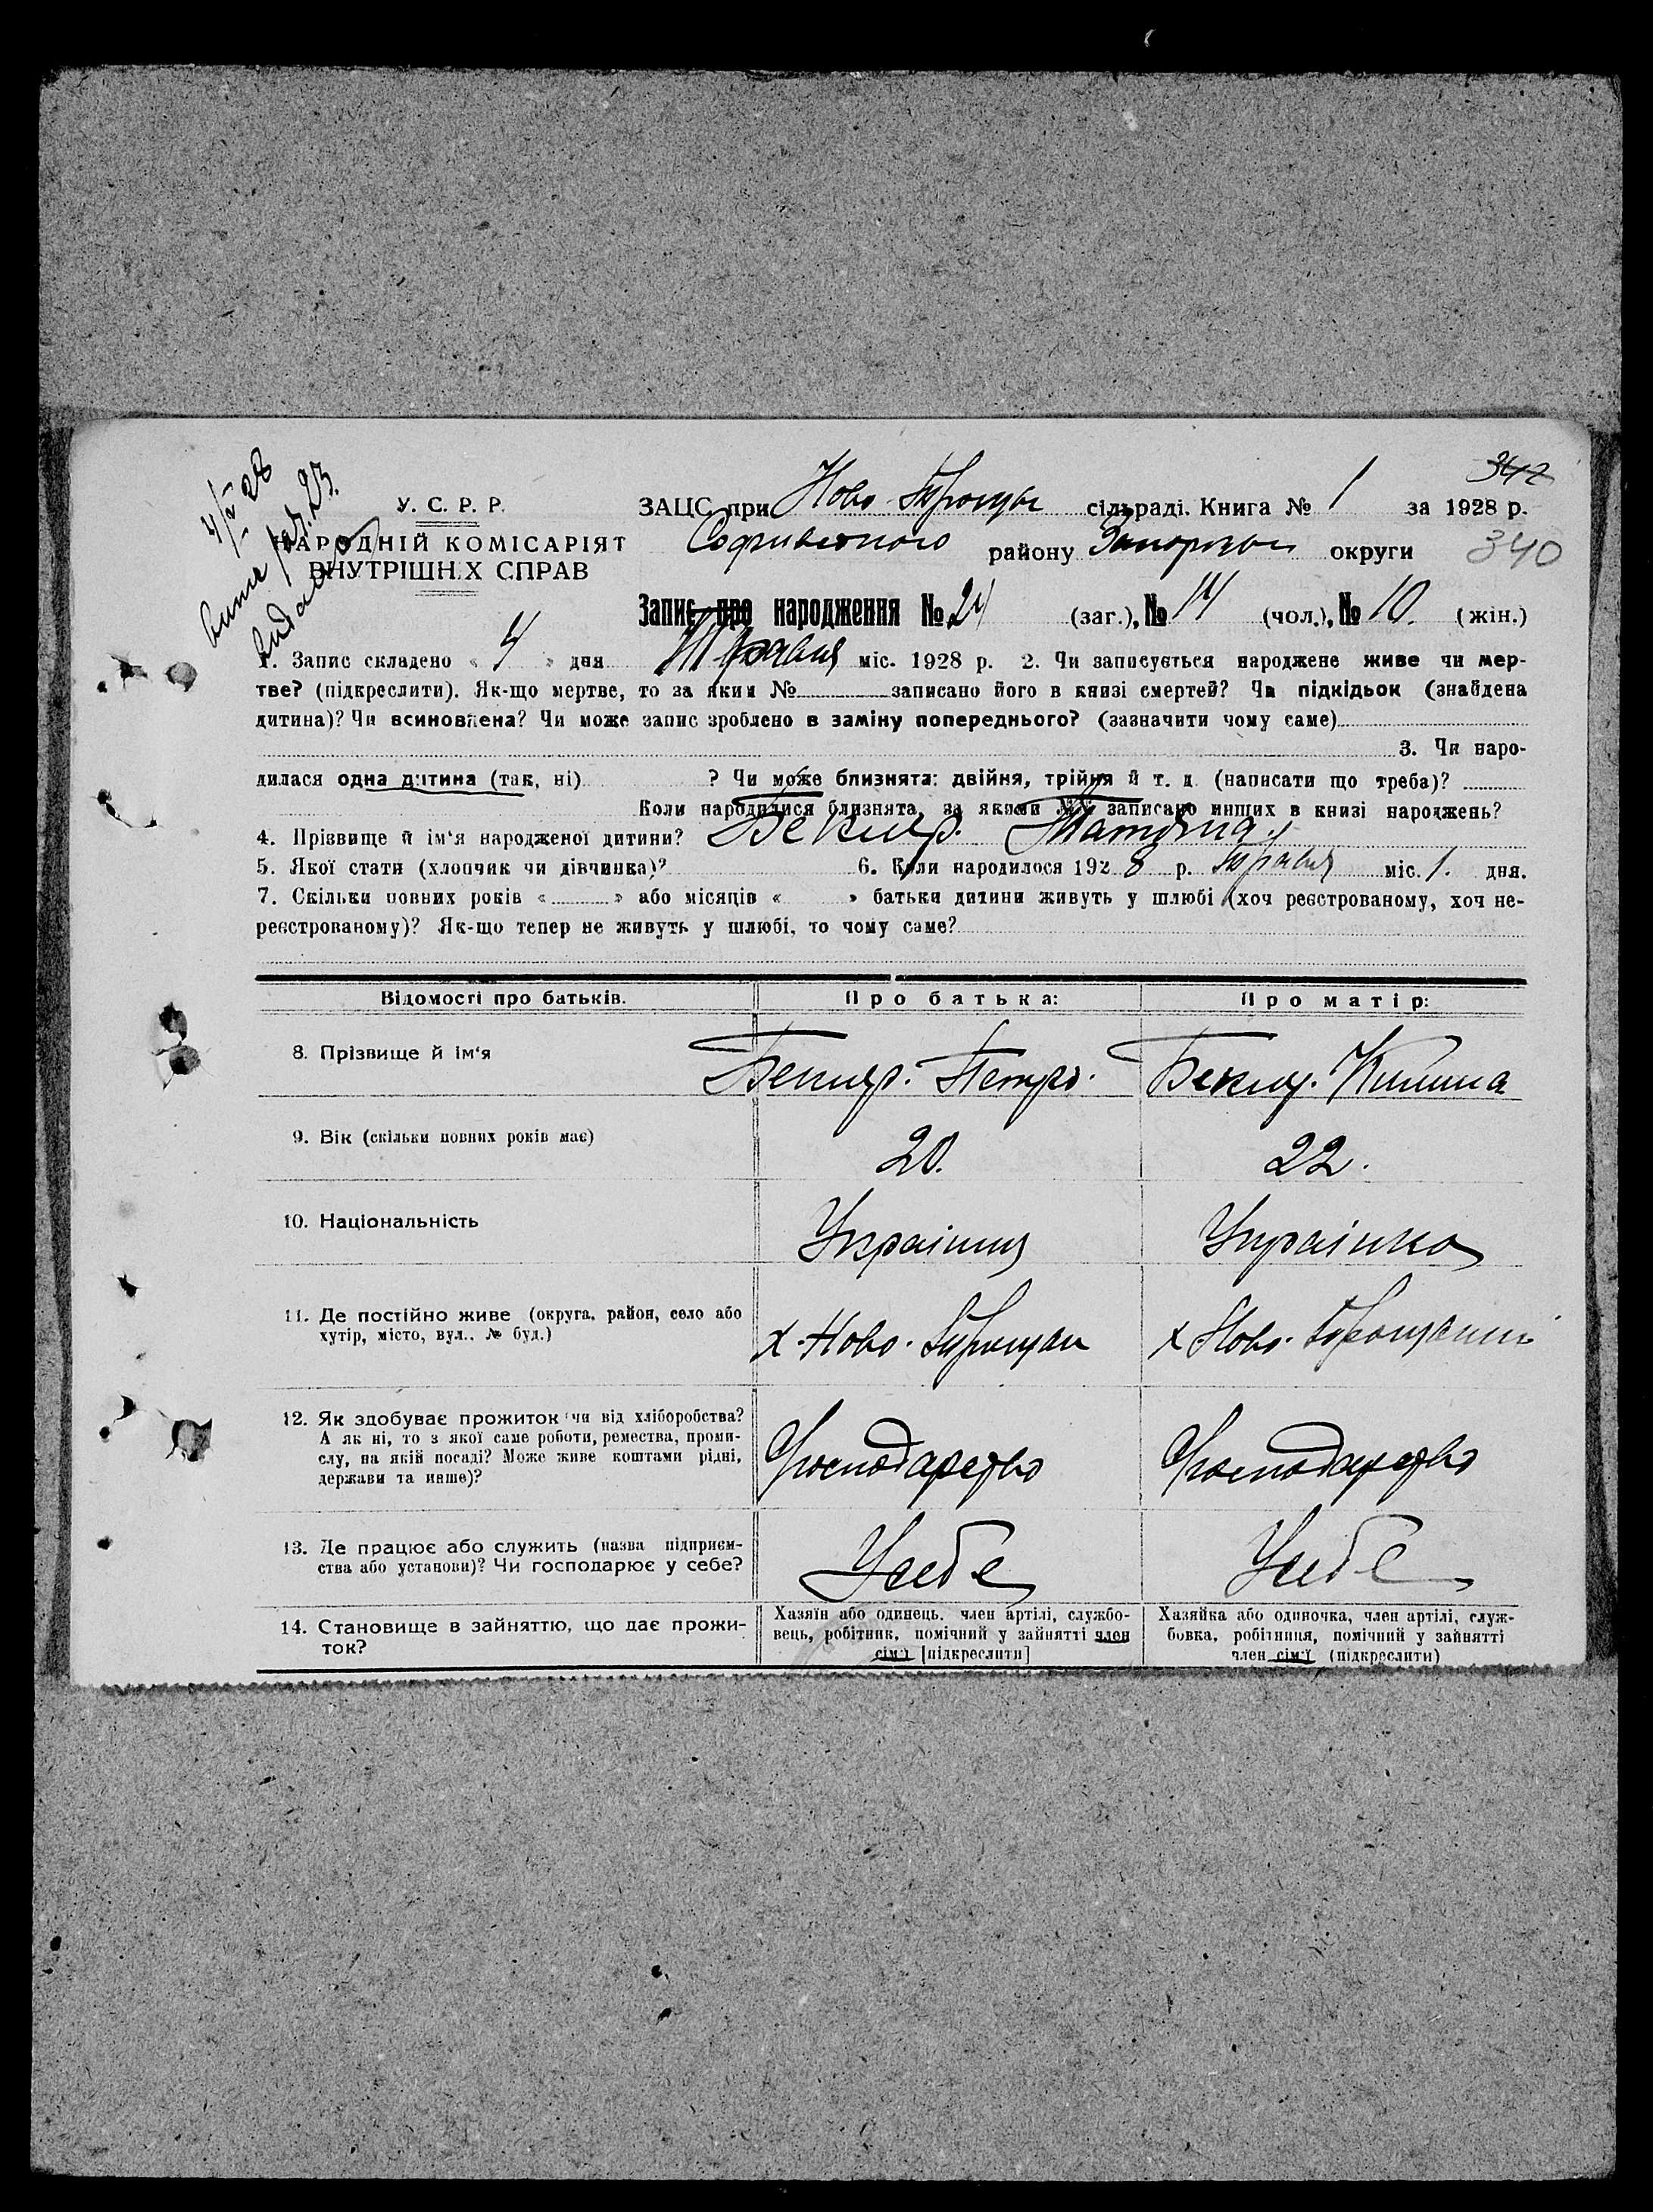 342
4/V 28
У. С. Р. Р.
НАРОДНІЙ КОМІСАРІЯТ
ВНУТРІШНІХ СПРАВ
ЗАЦС при Ново-Троицьк сільраді. Книга № 1 за 1928 р.
Софиивского району Запорізьк округи 340
Запис про народження № 24 (заг.), № 14 (чол.), № 10. (жін.)
1. Запис складено « 4 » дня Травня міс. 1928 р. 2. Чи записується народжене живе чи мер-
тве? (підкреслити). Як-що мертве, то за яким № записано його в книзі смертей? Чи підкідьок (знайдена
дитина)? Чи всиновлена? Чи може запис зроблено в заміну попереднього? (зазначити чому саме)
3. Чи наро-
дилася одна дитина (так, ні) ? Чи може близнята: двійня, трійня й т. д. (написати що треба)?
Коли народилися близнята, за якими №№ записано инших в книзі народжень?
4. Прізвище й ім'я народженої дитини? Бекир. Татяна.
5. Якої стати (хлопчик чи дівчинка)? 6. Коли народилося 192 8 р. Травня міс. 1. дня.
7. Скільки повних років « » або місяців « » батьки дитини живуть у шлюбі (хоч реєстрованому, хоч не-
реєстрованому)? Як-що тепер не живуть у шлюбі, то чому саме?
Відомості про батьків. Про батька: Про матір:
8. Прізвище й ім'я Бекир. Петро. Бекир. Килина
9. Вік (скільки повних років має) 20. 22.
10. Національність Українец Українка
11. Де постійно живе (округа, район, село або
хутір, місто, вул., № буд.) х. Ново-Троицки х Ново-Троицкий
12. Як здобуває прожиток чи від хліборобства?
А як ні, то з якої саме роботи, ремества, проми-
слу, на якій посаді? Може живе коштами рідні,
держави та инше)? Господарство Господарство
13. Де працює або служить (назва підприєм-
ства або установи)? Чи господарює у себе? У себе У себе
14. Становище в зайняттю, що дає прожи-
ток?
Хазяїн або одинець, член артілі, службо-
вець, робітник, помічний у зайнятті член
сім'ї [підкреслити]
Хазяйка або одиночка, член артілі, служ-
бовка, робітниця, помічний у зайнятті
член сім'ї (підкреслити)